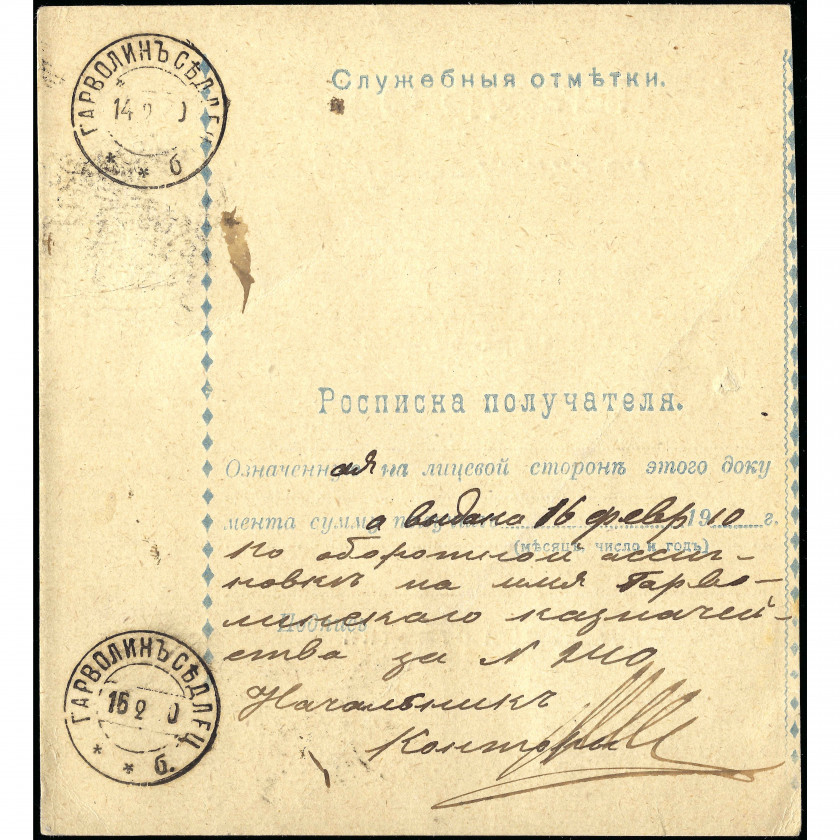 ГАРВОЛИНЪ СѢДЛЕЦ.
14 2 10
б
Служебныя отмѣтки.
Росписка получателя.
Означенная на лицевой сторонѣ этого доку
мента сумма выдана 16 февр 1910 г.
(мѣсяцъ, число и годъ)
По оборотной ассиг-
новкѣ на имя Гарво-
линскаго казначей-
Подпись
ства за №
Начальникъ
Конторы
ГАРВОЛИНЪ СѢДЛЕЦ.
16 2 10
б.